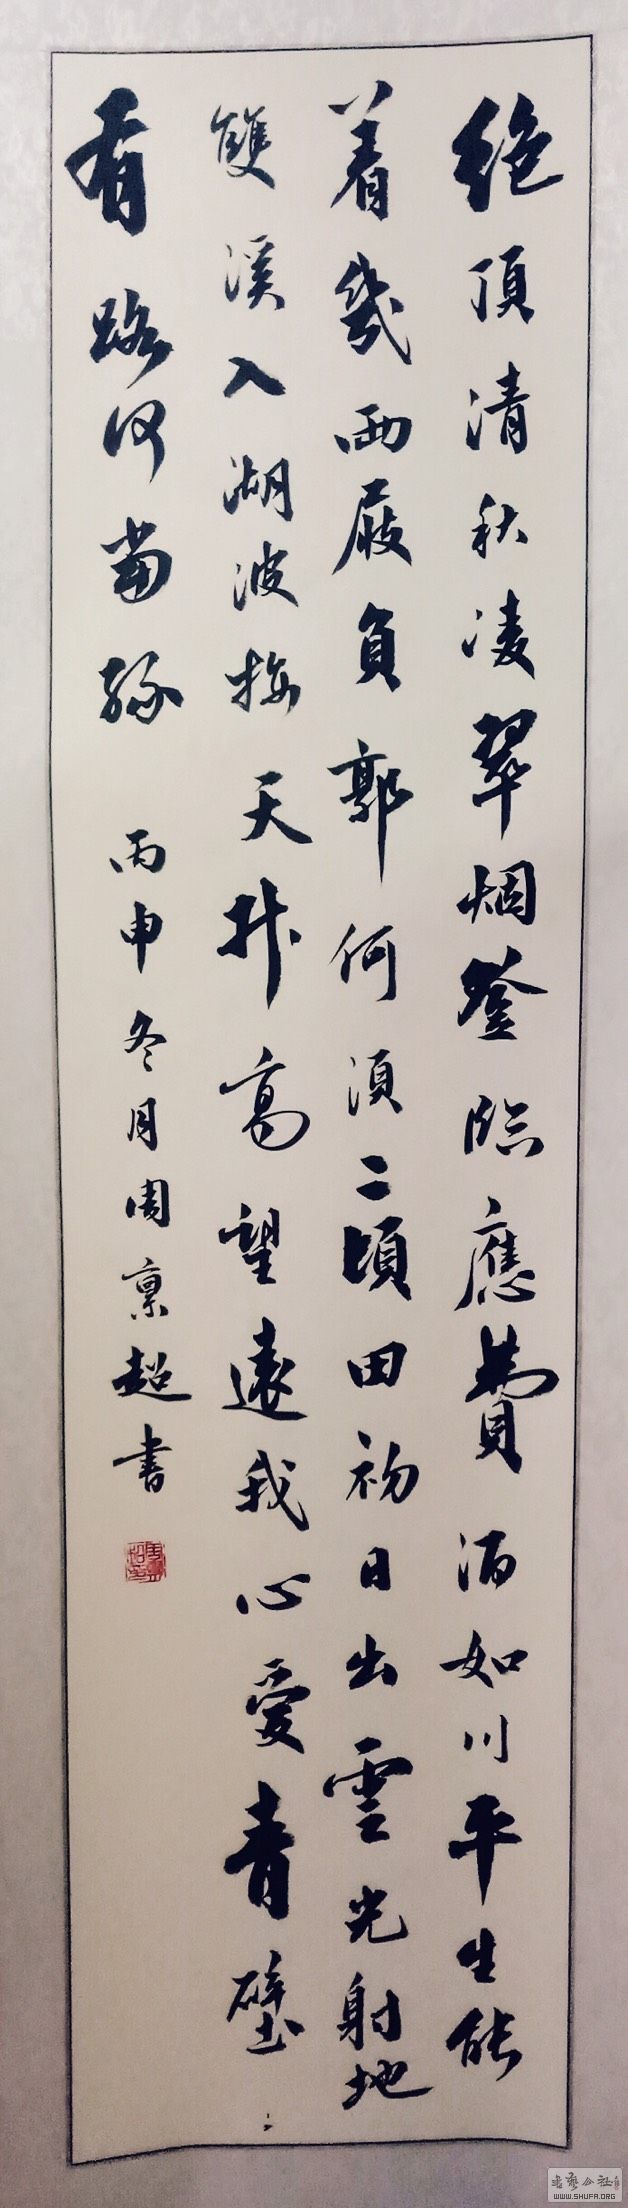 絶頂清秋凌翠烟登臨應費酒如川平生能
着幾兩屐負郭何須二頃田初日出雲光射地
雙溪入湖波接天升高望遠我心愛青壁
有路何當緣
丙申冬月周稟超書
WWW.SHUFA.ORG